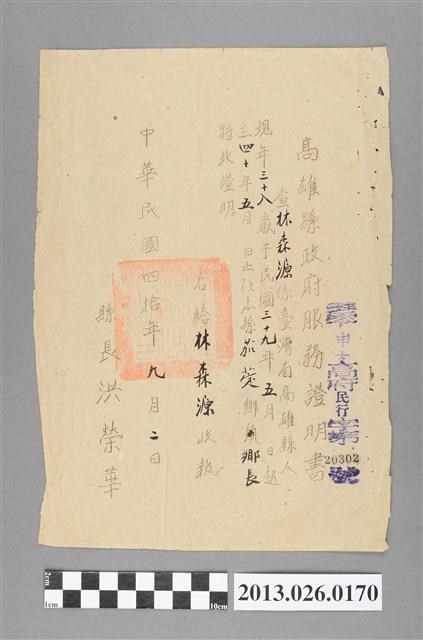 高雄縣政府服務證明書
民行字第
20302
號
查林森源係臺灣省高雄縣人
現年三十八歲于民國三十九年五月 日起
至四十年五月 日止任本縣茄萣鄉鎮鄉長
特此證明
右給林森源收執
中華民國四拾年九月二日
縣長洪榮華
2cm
1cm
10cm
2013.026.0170